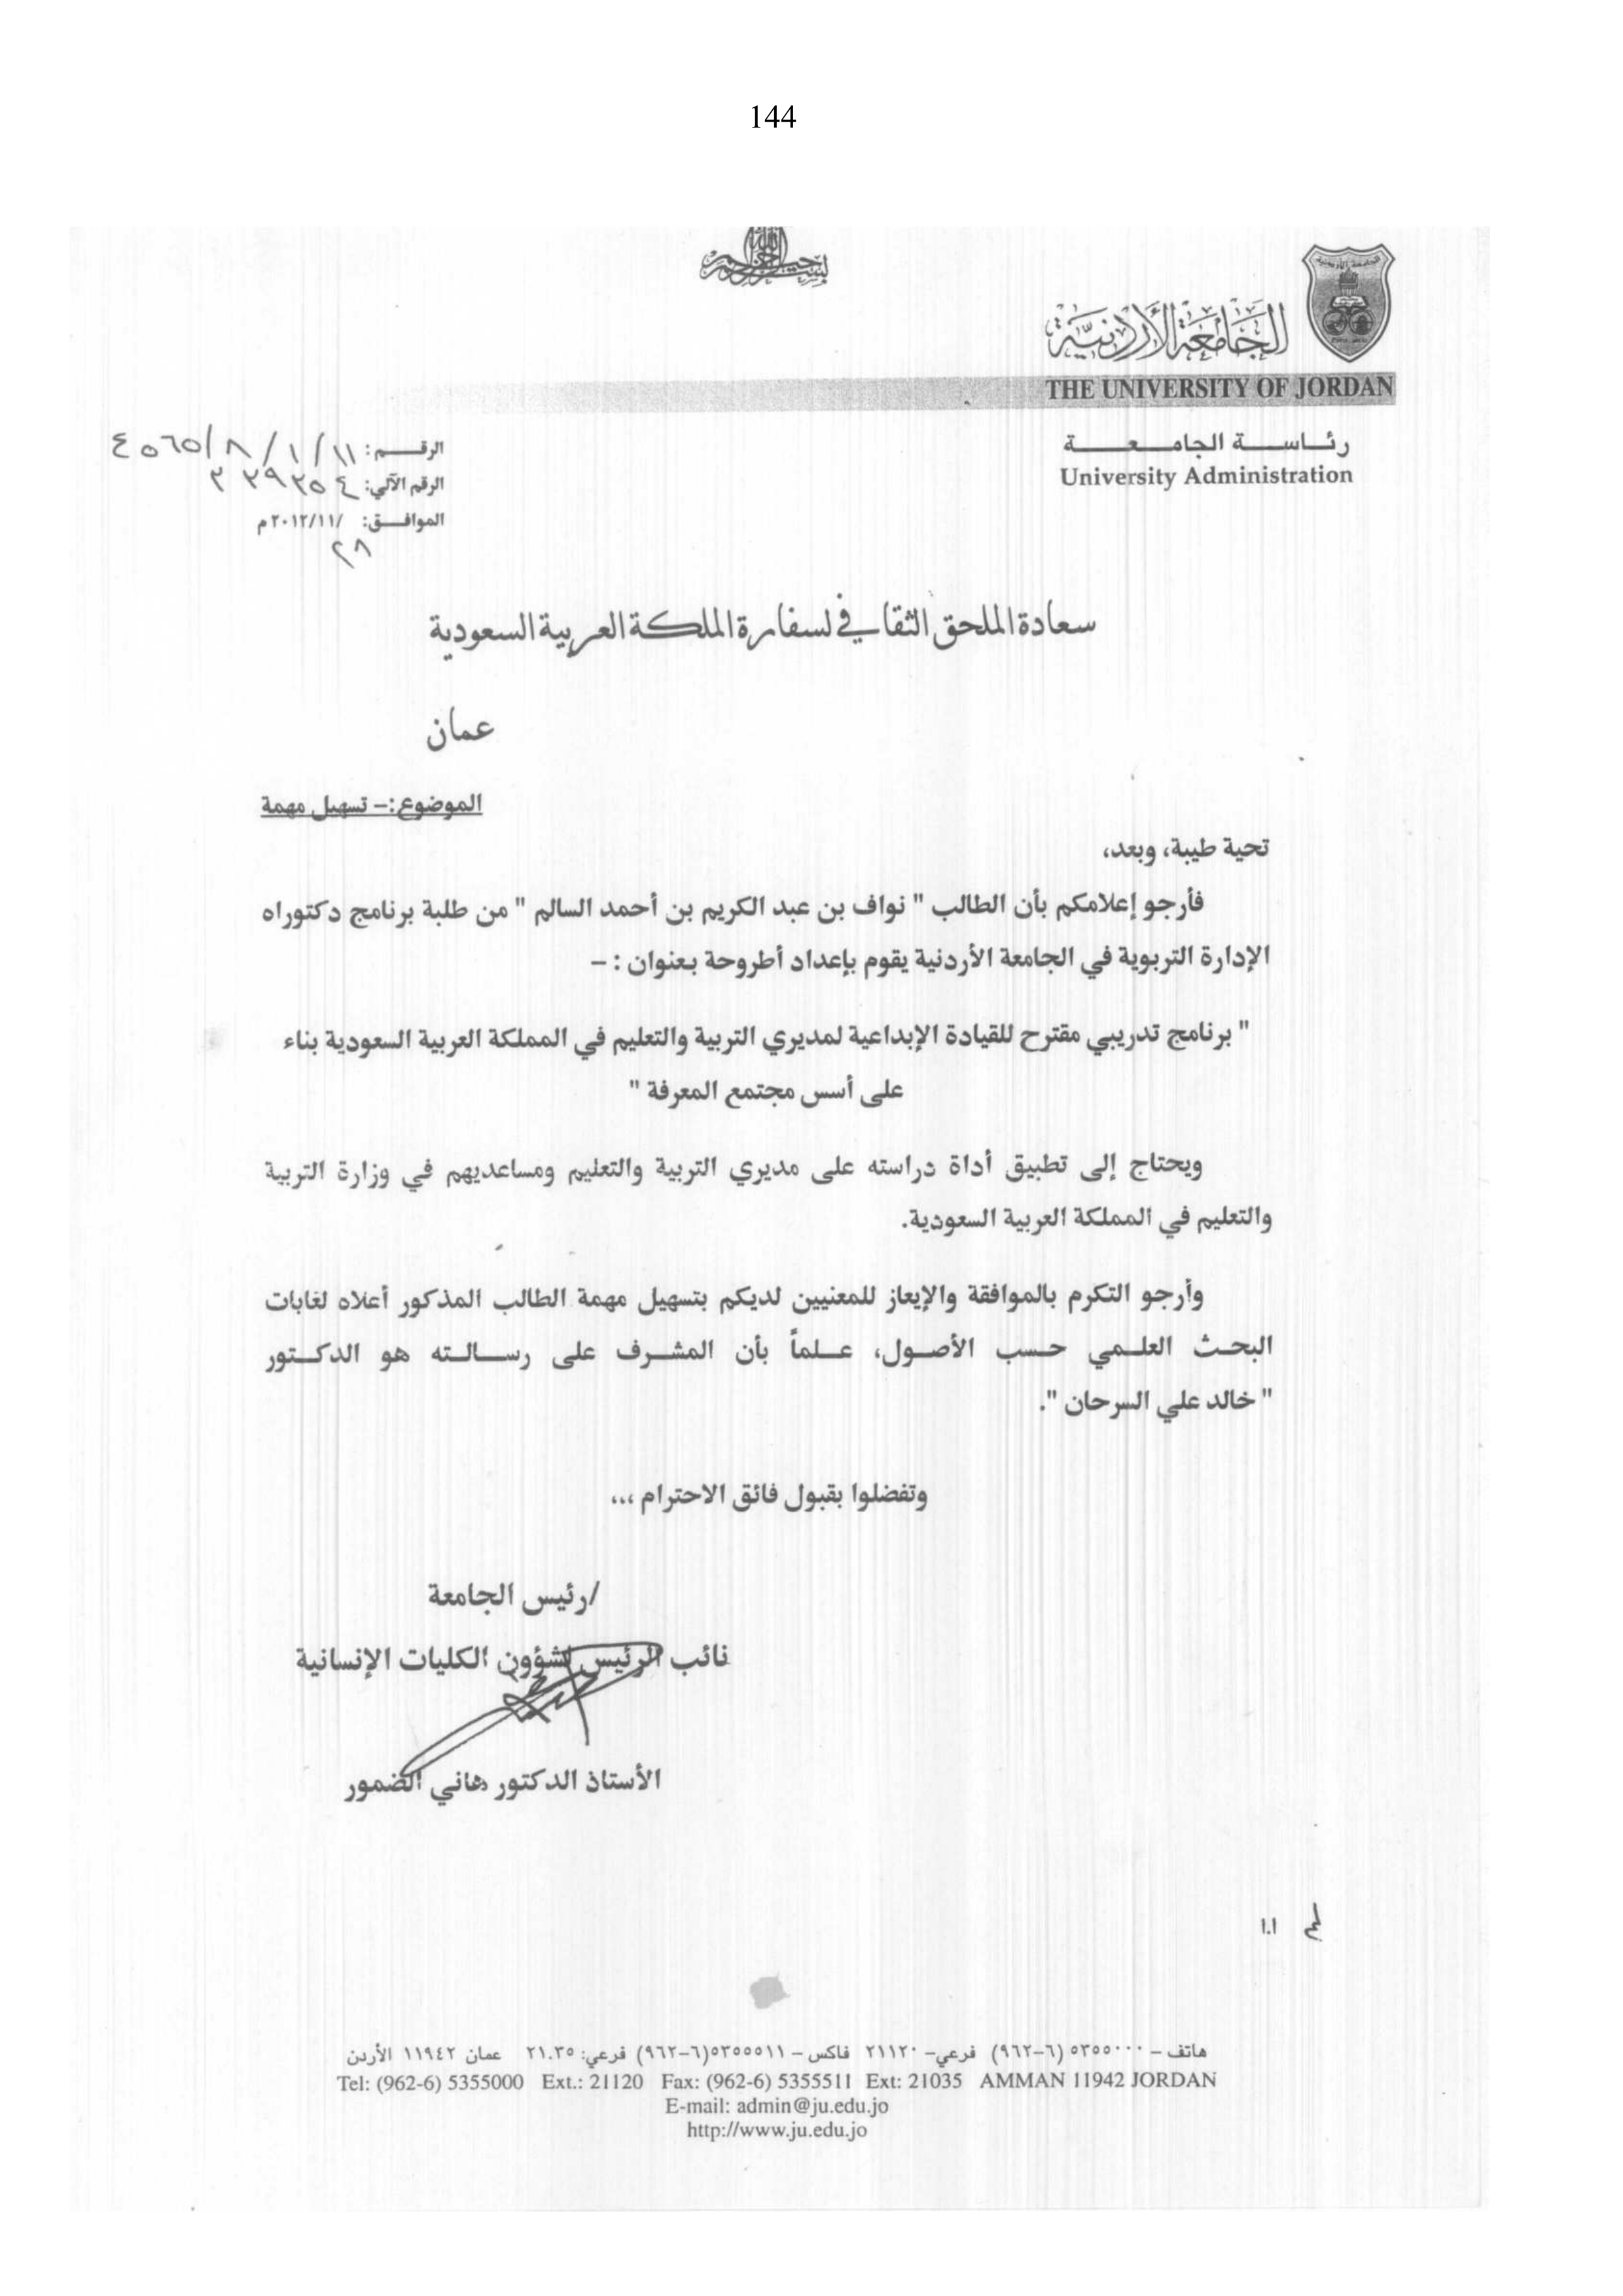 144
بسم الله الرحمن الرحيم
الجامعة الأردنية
THE UNIVERSITY OF JORDAN
رئاسة الجامعة
University Administration
الرقم: ١١/١/٨/٤٥٦٥
الرقم الآلي:
الموافق: /٢٠١٢/١١م
٢٨
سعادة الملحق الثقافي لسفارة المملكة العربية السعودية
عمان
الموضوع:– تسهيل مهمة
تحية طيبة، وبعد،
فأرجو إعلامكم بأن الطالب " نواف بن عبد الكريم بن أحمد السالم " من طلبة برنامج دكتوراه
الإدارة التربوية في الجامعة الأردنية يقوم بإعداد أطروحة بعنوان : –
" برنامج تدريبي مقترح للقيادة الإبداعية لمديري التربية والتعليم في المملكة العربية السعودية بناء
على أسس مجتمع المعرفة "
ويحتاج إلى تطبيق أداة دراسته على مديري التربية والتعليم ومساعديهم في وزارة التربية
والتعليم في المملكة العربية السعودية.
وأرجو التكرم بالموافقة والإيعاز للمعنيين لديكم بتسهيل مهمة الطالب المذكور أعلاه لغايات
البحث العلمي حسب الأصول، علماً بأن المشرف على رسالته هو الدكتور
" خالد علي السرحان ".
وتفضلوا بقبول فائق الاحترام ،،،
/رئيس الجامعة
نائب الرئيس لشؤون الكليات الإنسانية
الأستاذ الدكتور هاني الضمور
١.١
هاتف – ٥٣٥٥٠٠٠ (٦–٩٦٢) فرعي– ٢١١٢٠ فاكس – ٥٣٥٥٥١١(٦–٩٦٢) فرعي: ٢١٠٣٥ عمان ١١٩٤٢ الأردن
Tel: (962-6) 5355000 Ext.: 21120 Fax: (962-6) 5355511 Ext: 21035 AMMAN 11942 JORDAN
E-mail: admin@ju.edu.jo
http://www.ju.edu.jo